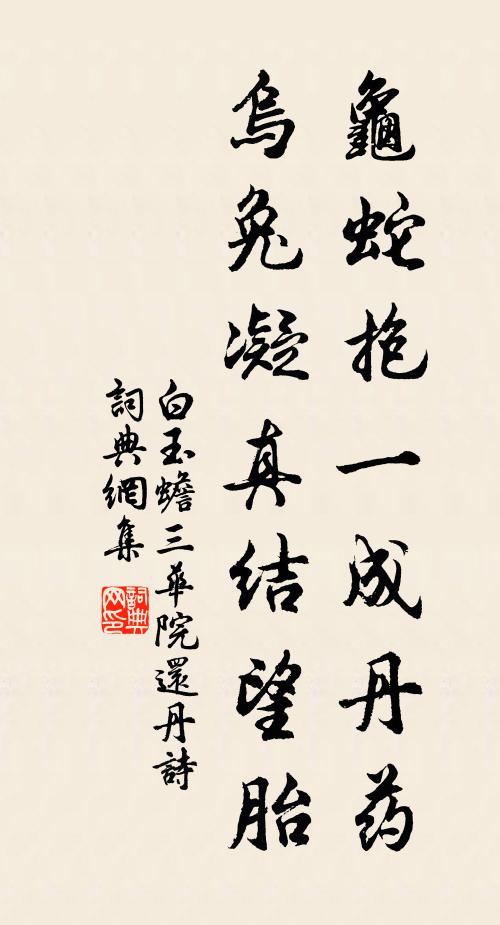 龜蛇抱一成丹药
烏兔凝真結望胎
白玉蟾三華院還丹詩
詞典網集
詞典网印